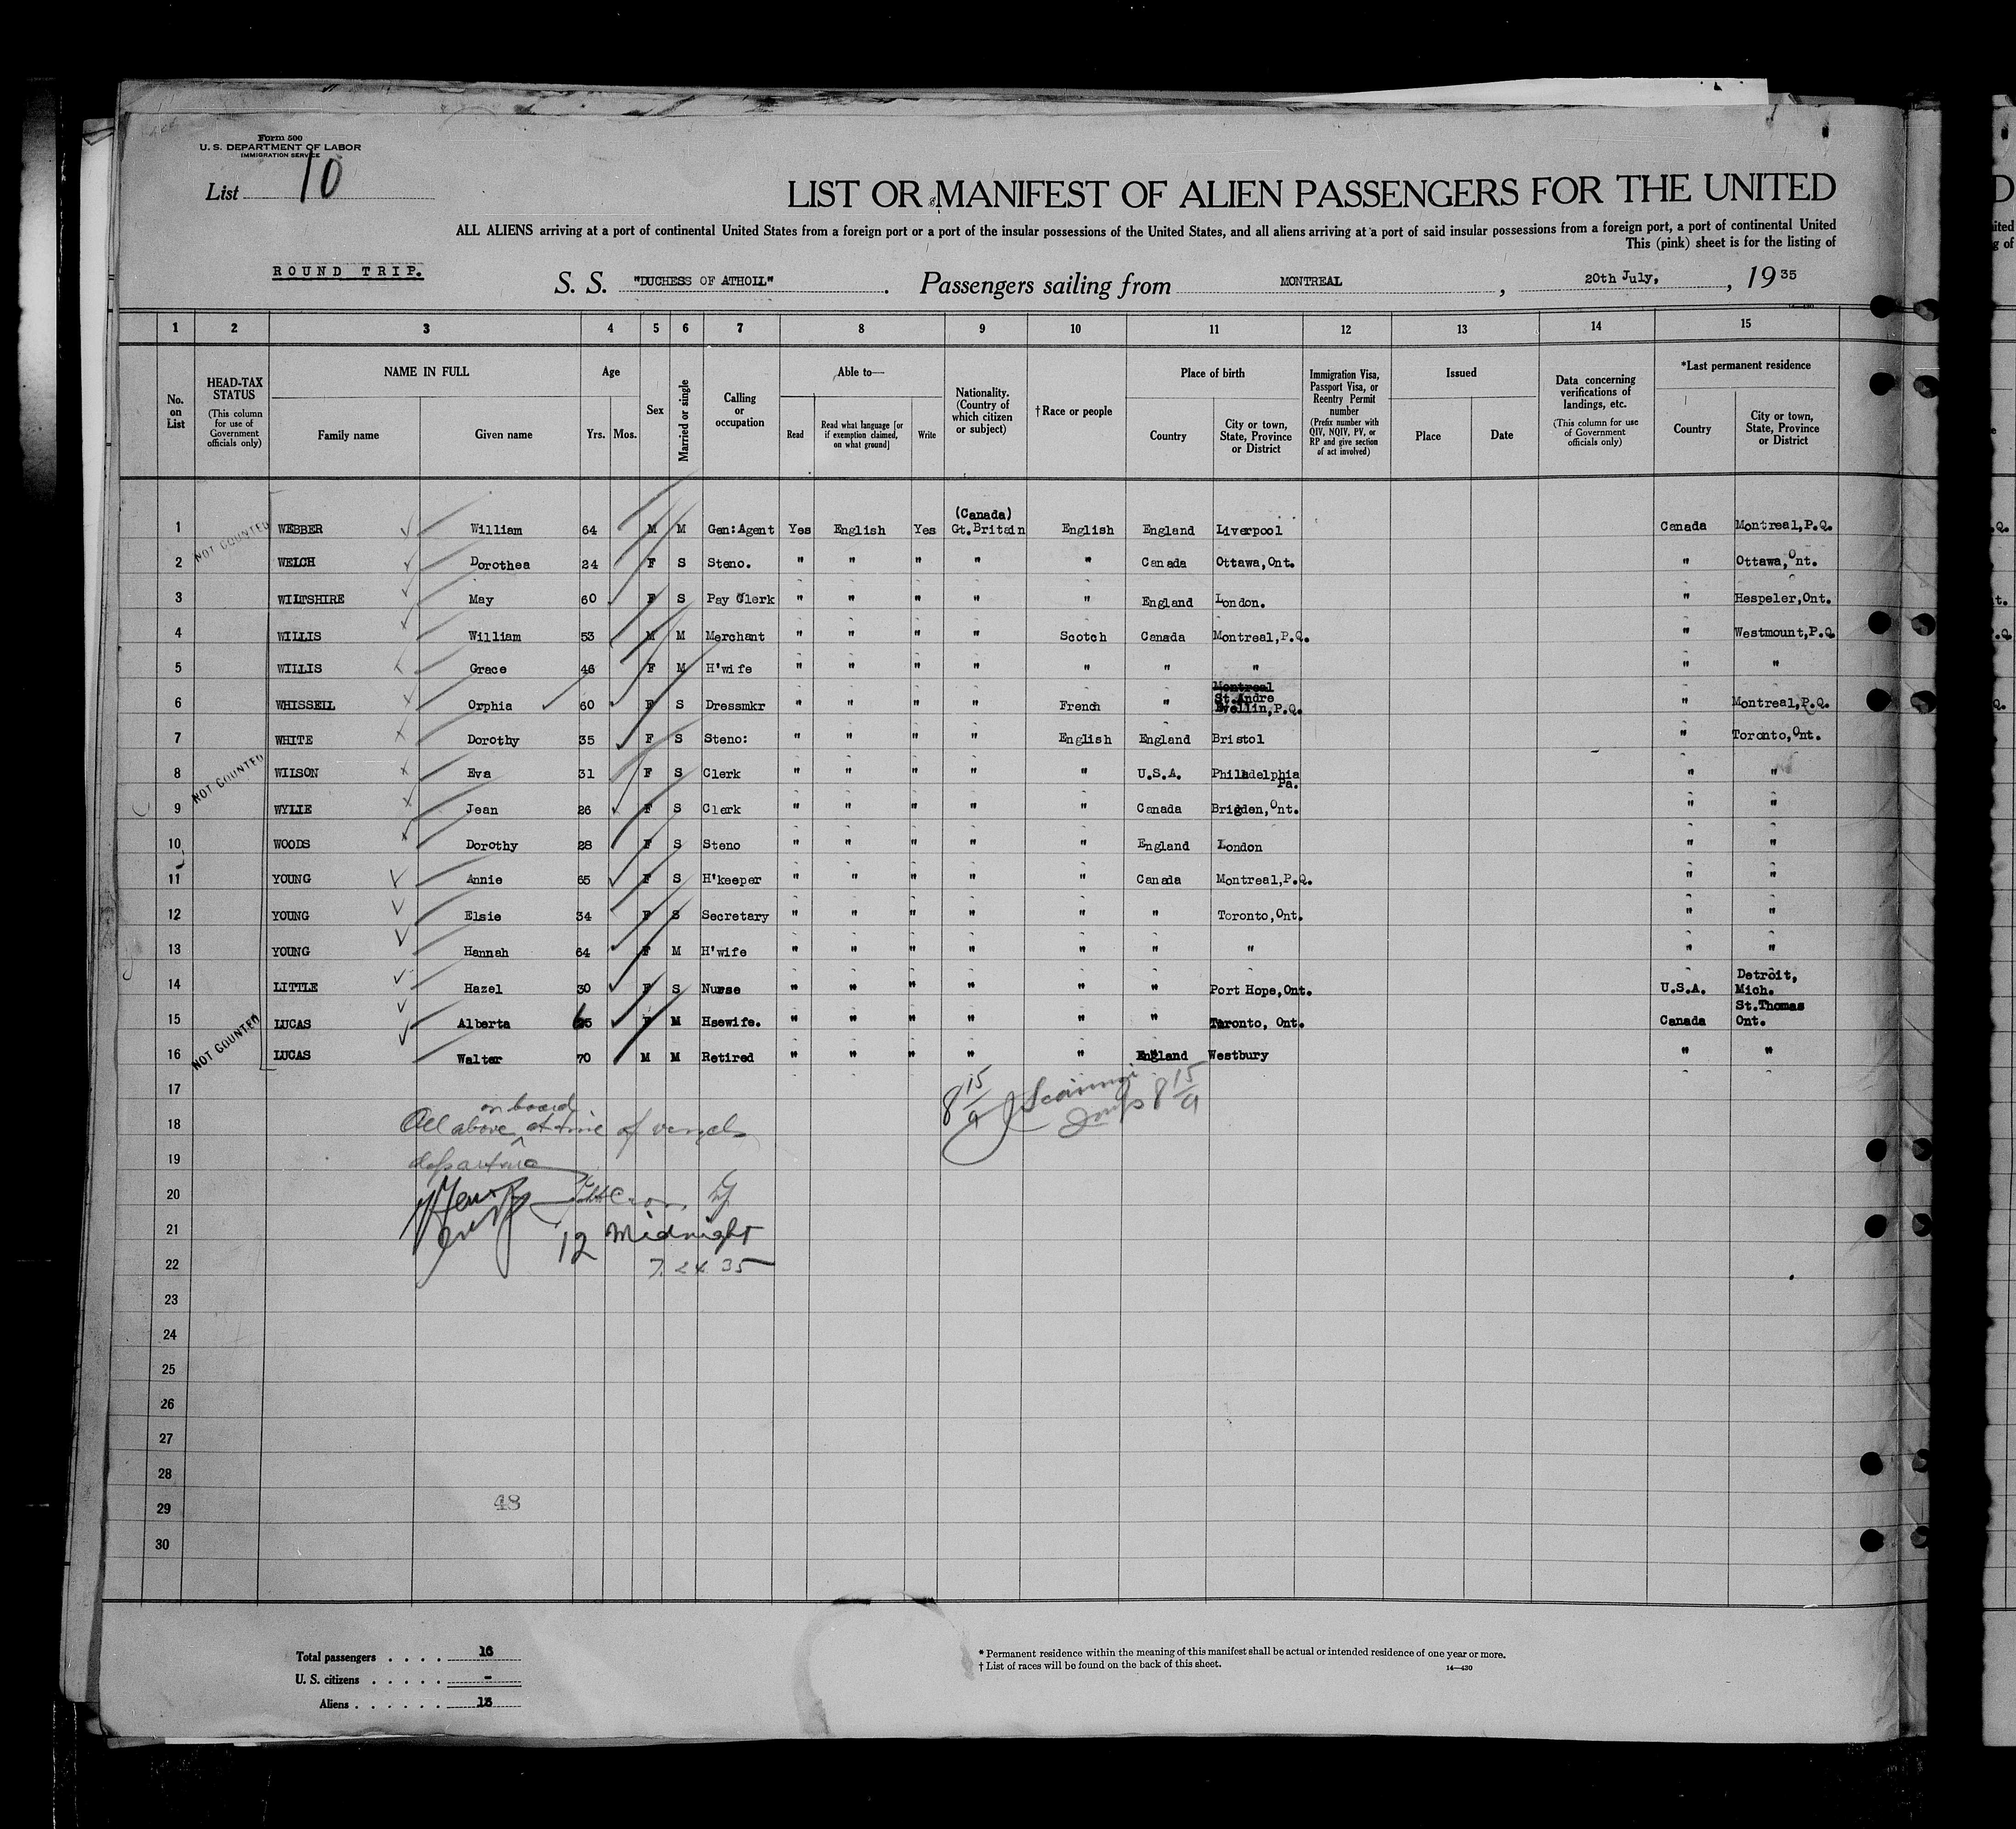 Form 500
U. S. DEPARTMENT OF LABOR
IMMIGRATION SERVICE
List 10
LIST OR MANIFEST OF ALIEN PASSENGERS FOR THE UNITED
ALL ALIENS arriving at a port of continental United States from a foreign port or a port of the insular possessions of the United States, and all aliens arriving at a port of said insular possessions from a foreign port, a port of continental United
This (pink) sheet is for the listing of
ROUND TRIP.
S. S. "DUCHESS OF ATHOLL". Passengers sailing from MONTREAL, 20th July, 1935
1 2 3 4 5 6 7 8 9 10 11 12 13 14 15
No. on List
HEAD-TAX STATUS (This column for use of Government officials only)
NAME IN FULL Family name Given name
Age Yrs. Mos.
Sex
Married or single
Calling or occupation
Able to— Read Read what language [or if exemption claimed, on what ground] Write
Nationality. (Country of which citizen or subject)
†Race or people
Place of birth Country City or town, State, Province or District
Immigration Visa, Passport Visa, or Reentry Permit number (Prefix number with QIV, NQIV, PV, or RP and give section of act involved)
Issued Place Date
Data concerning verifications of landings, etc. (This column for use of Government officials only)
*Last permanent residence Country City or town, State, Province or District
NOT COUNTED
1 WEBBER William 64 M M Gen:Agent Yes English Yes (Canada) Gt.Britain English England Liverpool Canada Montreal,P.Q.
2 WELCH Dorothea 24 F S Steno. " " " " " Canada Ottawa,Ont. " Ottawa,Ont.
3 WILTSHIRE May 60 F S Pay Clerk " " " " " England London. " Hespeler,Ont.
4 WILLIS William 53 M M Merchant " " " " Scotch Canada Montreal,P.Q. " Westmount,P.Q
5 WILLIS Grace 46 F M H'wife " " " " " " " " "
6 WHISSELL Orphia 60 F S Dressmkr " " " " French " Montreal St.Andre Evellin,P.Q. " Montreal,P.Q.
7 WHITE Dorothy 35 F S Steno: " " " " English England Bristol " Toronto,Ont.
NOT COUNTED
8 WILSON Eva 31 F S Clerk " " " " " U.S.A. Philadelphia Pa. " "
9 WYLIE Jean 26 F S Clerk " " " " " Canada Brigden,Ont. " "
10 WOODS Dorothy 28 F S Steno " " " " " England London " "
11 YOUNG Annie 65 F S H'keeper " " " " " Canada Montreal,P.Q. " "
12 YOUNG Elsie 34 F S Secretary " " " " " " Toronto,Ont. " "
13 YOUNG Hannah 64 F M H'wife " " " " " " " " "
14 LITTLE Hazel 30 F S Nurse " " " " " " Port Hope,Ont. U.S.A. Detroit, Mich.
NOT COUNTED
15 LUCAS Alberta 65 F M Hsewife. " " " " " " Toronto, Ont. Canada St.Thomas Ont.
16 LUCAS Walter 70 M M Retired " " " " " England Westbury " "
17
18
19
20
21
22
23
24
25
26
27
28
29
30
8 15/9 8 15/9
on board
All above at time of vessels
departure
12 Midnight
7.24.35
48
Total passengers . . . . 16
U. S. citizens . . . . . -
Aliens . . . . . .
* Permanent residence within the meaning of this manifest shall be actual or intended residence of one year or more.
† List of races will be found on the back of this sheet.
14—430